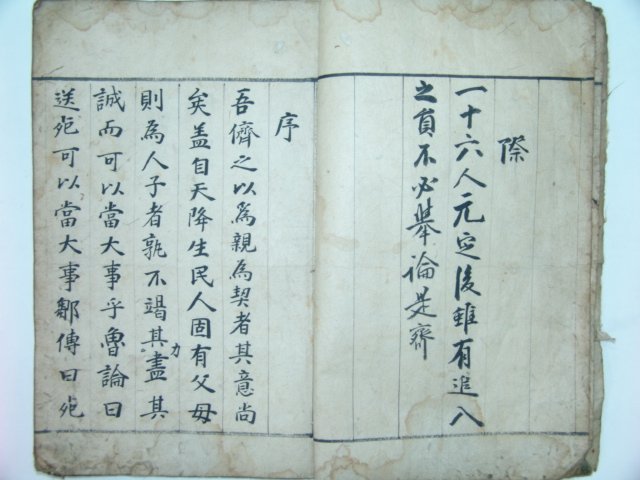 際
一十六人元定後雖有追入
之員不必擧論是齊
序
吾儕之以爲親爲契者其意尚
矣盖自天降生民人固有父母
則為人子者孰不竭其力盡其
誠而可以當大事乎魯論曰
送死可以當大事鄒傳曰死